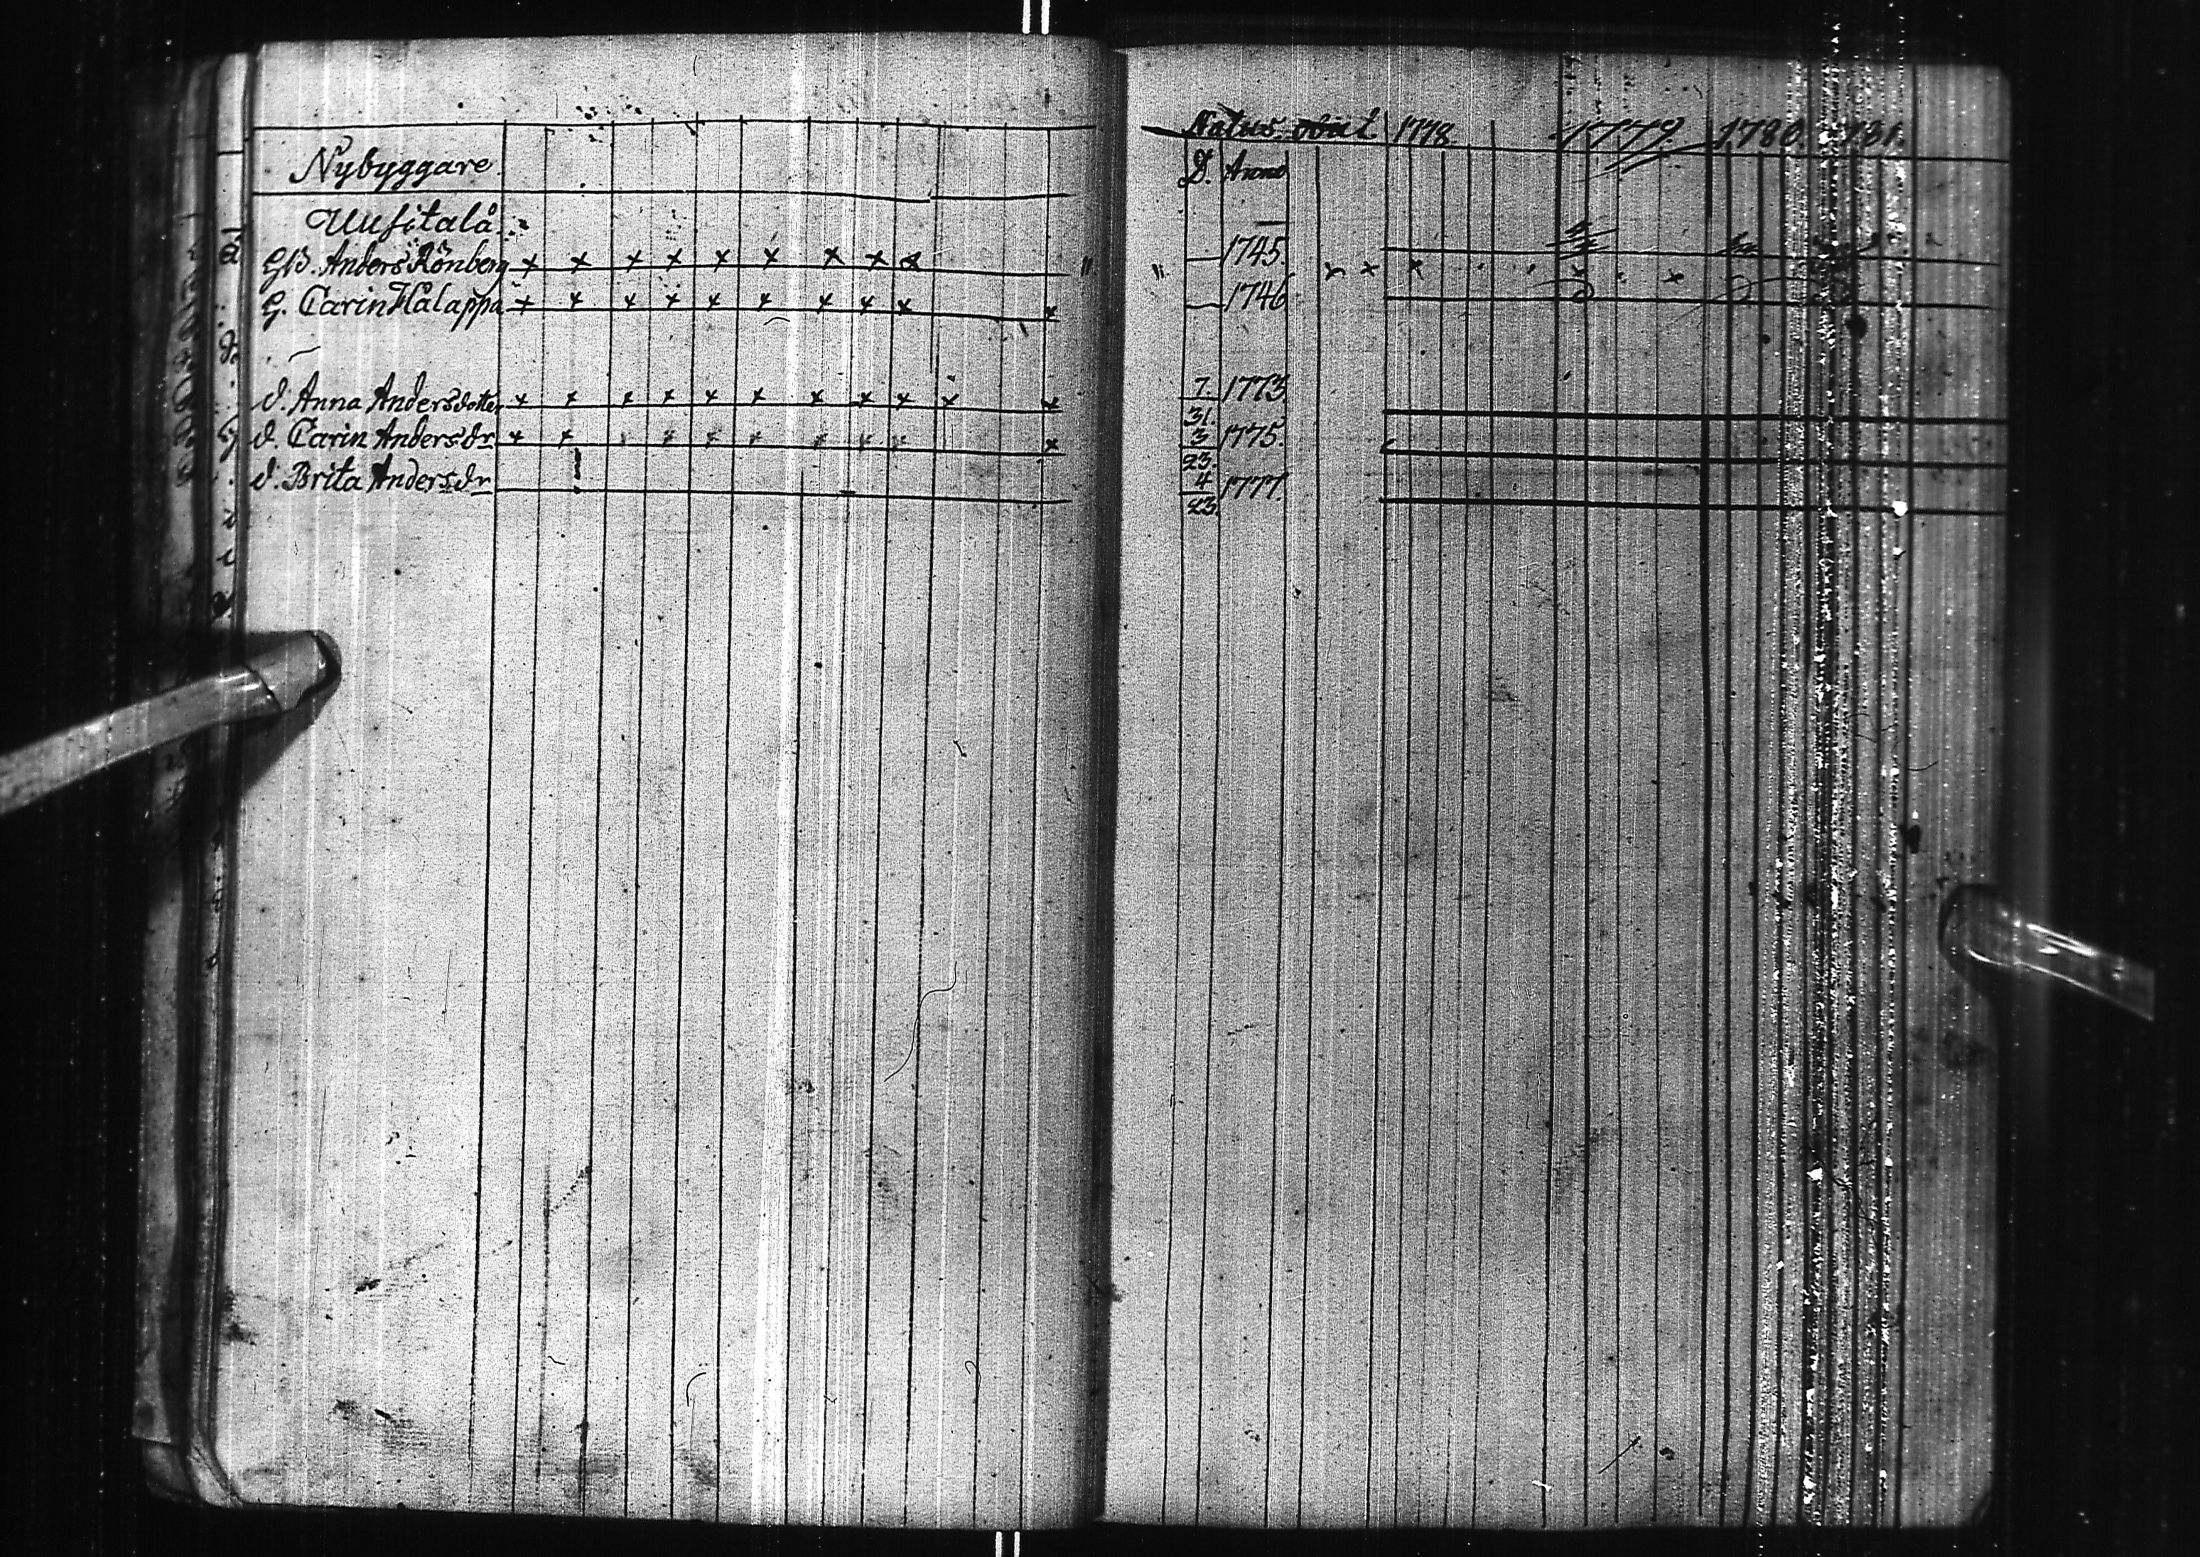 Nybyggare
Uusitalå
Anders Rönberg x x x x x x x x x
G. Carin Halappa x x x x x x x x x x
d. Anna Andersdotter x x x x x x x x x x x
d. Carin Andersdr x x x x x x x x x x
d. Brita Andersdr
Natus obiit 1778. 1779. 1780. 1781.
D. Anno
1745
1746
7. 1773
31.
3 1775.
23.
4 1777.
23.